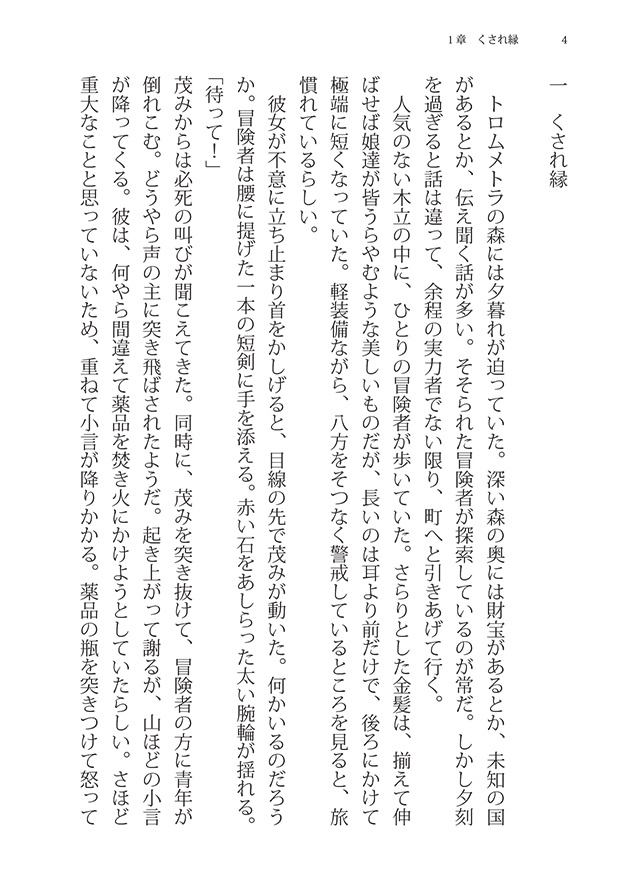 1章　くされ縁　　4
一　くされ縁
　トロムメトラの森には夕暮れが迫っていた。深い森の奥には財宝があるとか、未知の国
があるとか、伝え聞く話が多い。そそられた冒険者が探索しているのが常だ。しかし夕刻
を過ぎると話は違って、余程の実力者でない限り、町へと引きあげて行く。
　人気のない木立の中に、ひとりの冒険者が歩いていた。さらりとした金髪は、揃えて伸
ばせば娘達が皆うらやむような美しいものだが、長いのは耳より前だけで、後ろにかけて
極端に短くなっていた。軽装備ながら、八方をそつなく警戒しているところを見ると、旅
慣れているらしい。
　彼女が不意に立ち止まり首をかしげると、目線の先で茂みが動いた。何かいるのだろう
か。冒険者は腰に提げた一本の短剣に手を添える。赤い石をあしらった太い腕輪が揺れる。
「待って！」
茂みからは必死の叫びが聞こえてきた。同時に、茂みを突き抜けて、冒険者の方に青年が
倒れこむ。どうやら声の主に突き飛ばされたようだ。起き上がって謝るが、山ほどの小言
が降ってくる。彼は、何やら間違えて薬品を焚き火にかけようとしていたらしい。さほど
重大なことと思っていないため、重ねて小言が降りかかる。薬品の瓶を突きつけて怒って